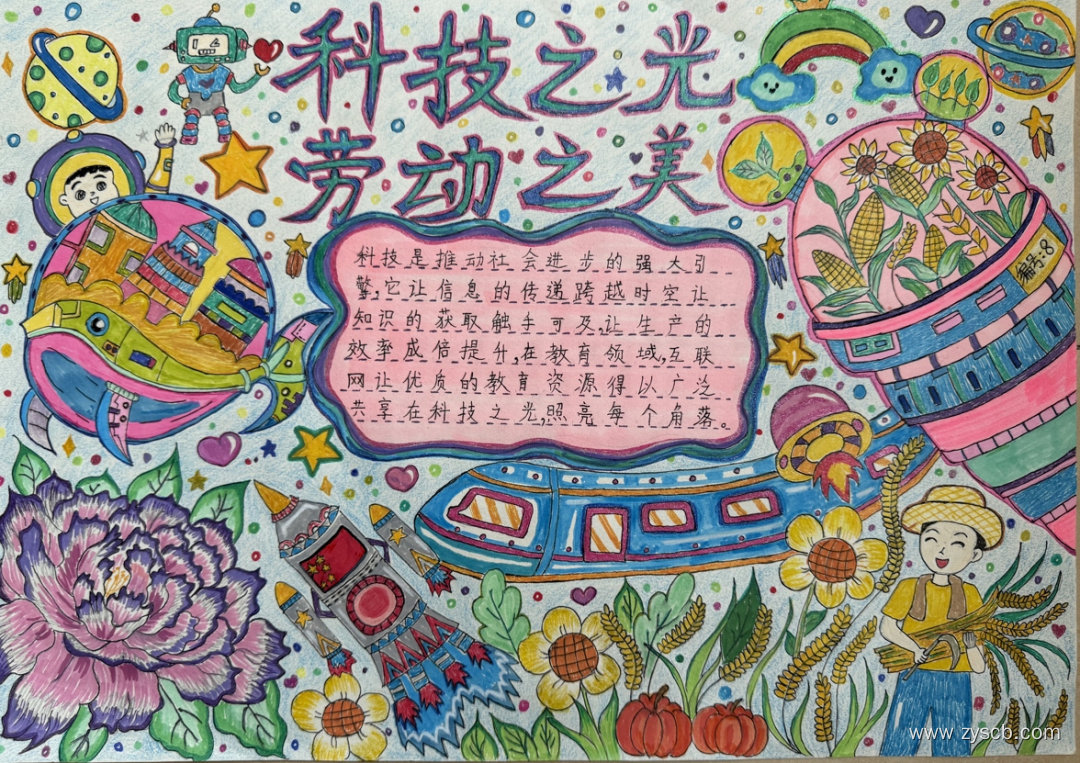 科技之光
劳动之美
科技是推动社会进步的强大引
擎,它让信息的传递跨越时空让
知识的获取触手可及,让生产的
效率成倍提升,在教育领域,互联
网让优质的教育资源得以广泛
共享在科技之光,照亮每个角落。
编号:8
www.zyscb.com